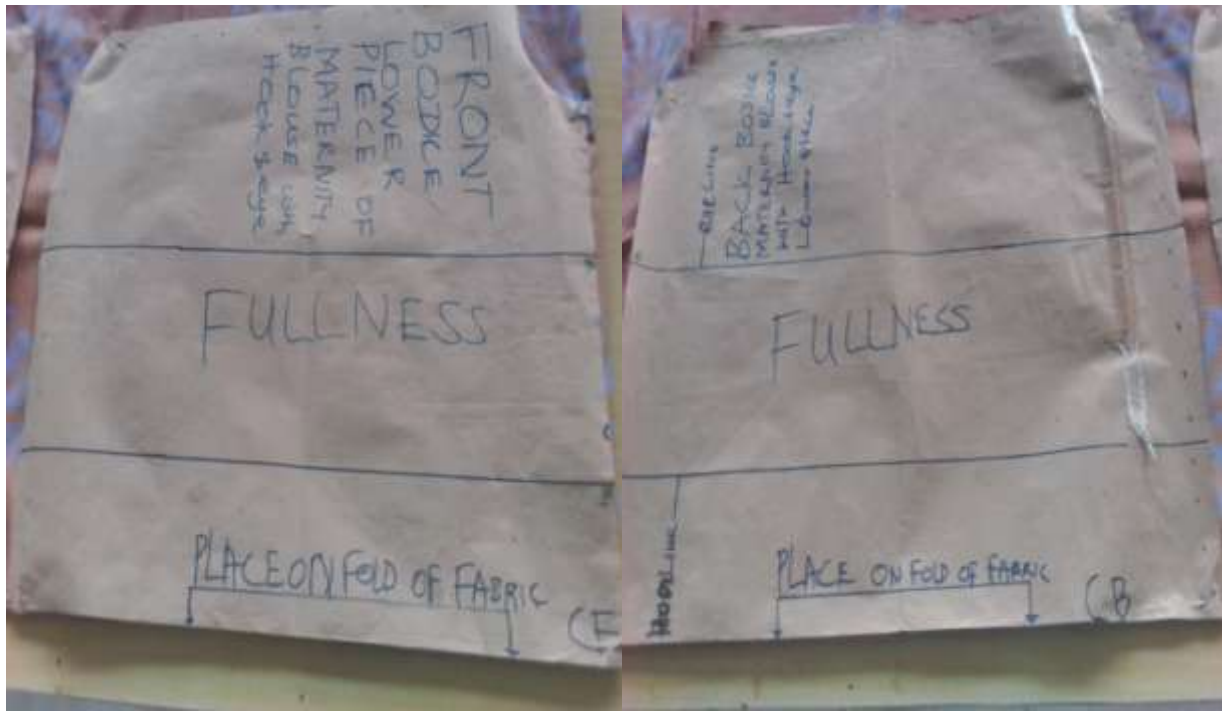 FRONT
BODICE
LOWER
PIECE OF
MATERNITY
BLOUSE with
Hook & eye
FULLNESS
PLACE ON FOLD OF FABRIC
CF
RIBLINE
BACK BODICE
MATERNITY BLOUSE
with Hook & eye
FULLNESS
HOODLINE
PLACE ON FOLD OF FABRIC
CB